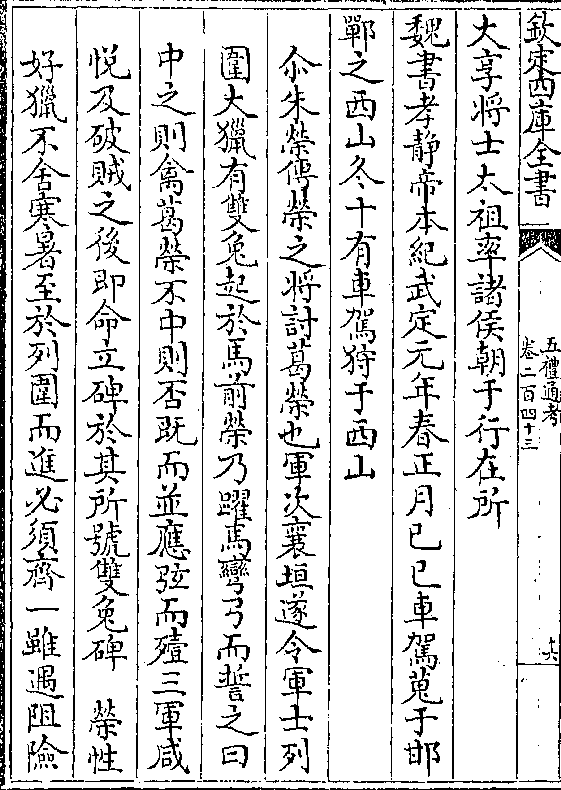 欽定四庫全書
五禮通考
卷二百四十三
大享將士太祖率諸侯朝于行在所
魏書孝静帝本紀武定元年春正月己巳車駕蒐于邯
鄲之西山冬十有車駕狩于西山
尒朱榮傳榮之將討葛榮也軍次襄垣遂令軍士列
圍大獵有雙兔起於馬前榮乃躍馬彎弓而誓之曰
中之則禽葛榮不中則否既而並應弦而殪三軍咸
悦及破賊之後即命立碑於其所號雙兔碑　榮性
好獵不舍寒暑至於列圍而進必須齊一雖遇阻險